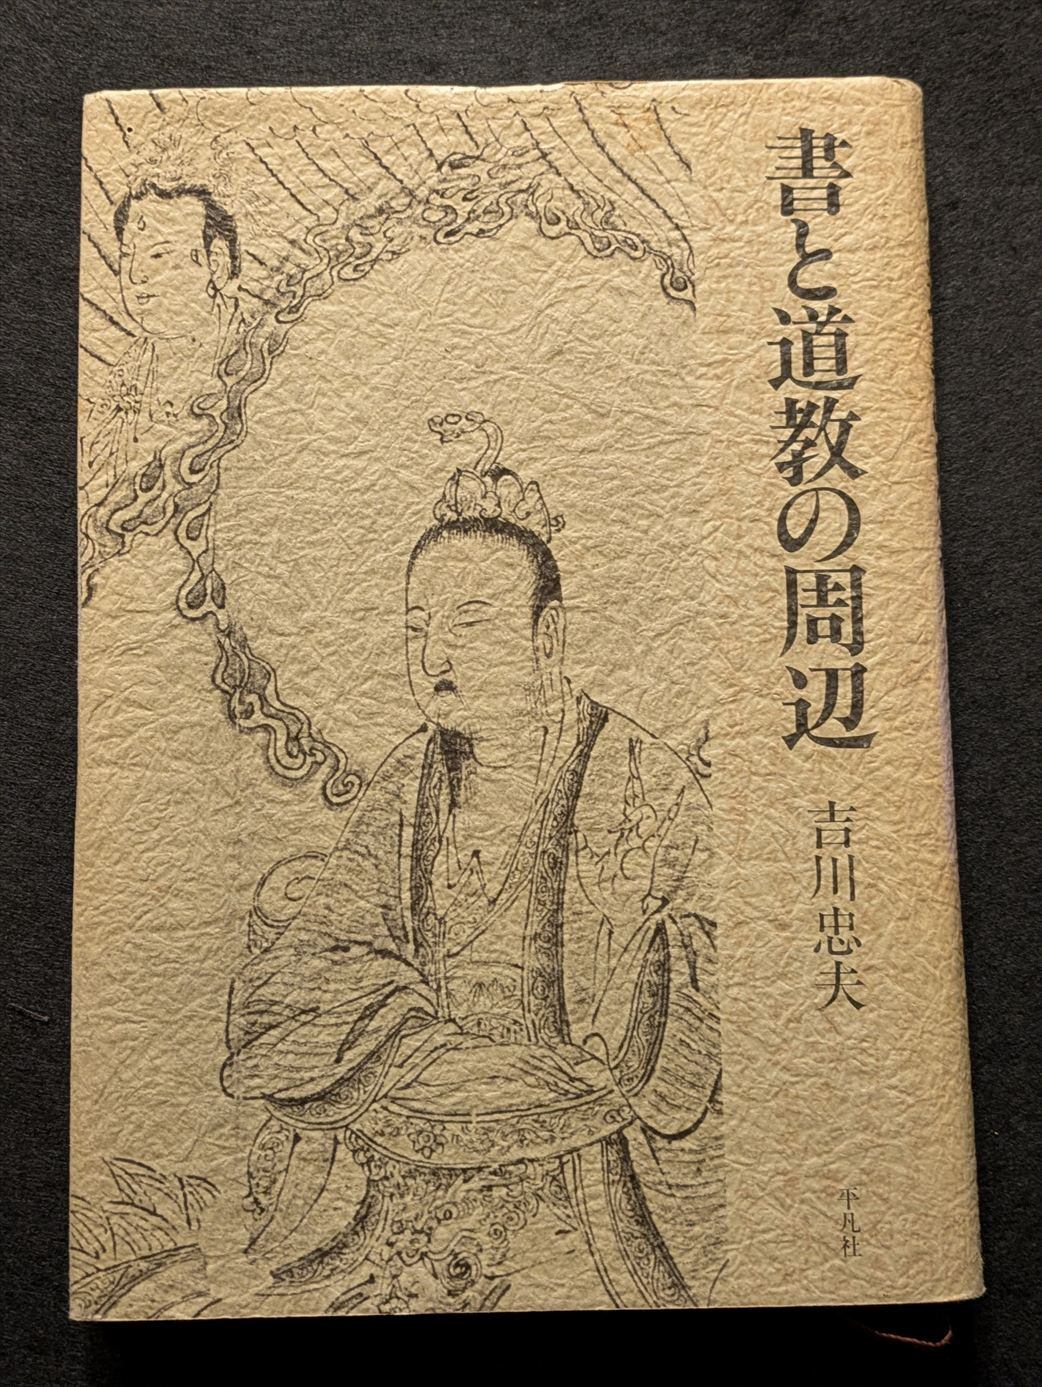 書と道教の周辺
吉川忠夫
平凡社